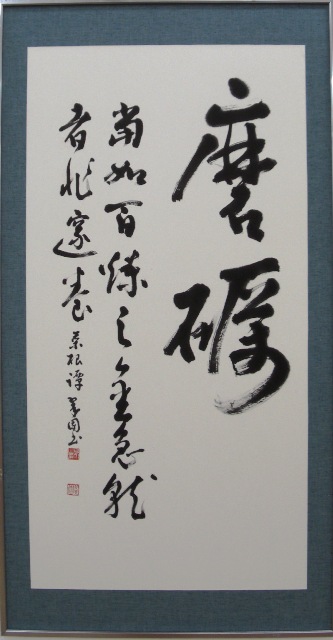 磨礪
當如百煉之金急就
者非邃養 菜根譚